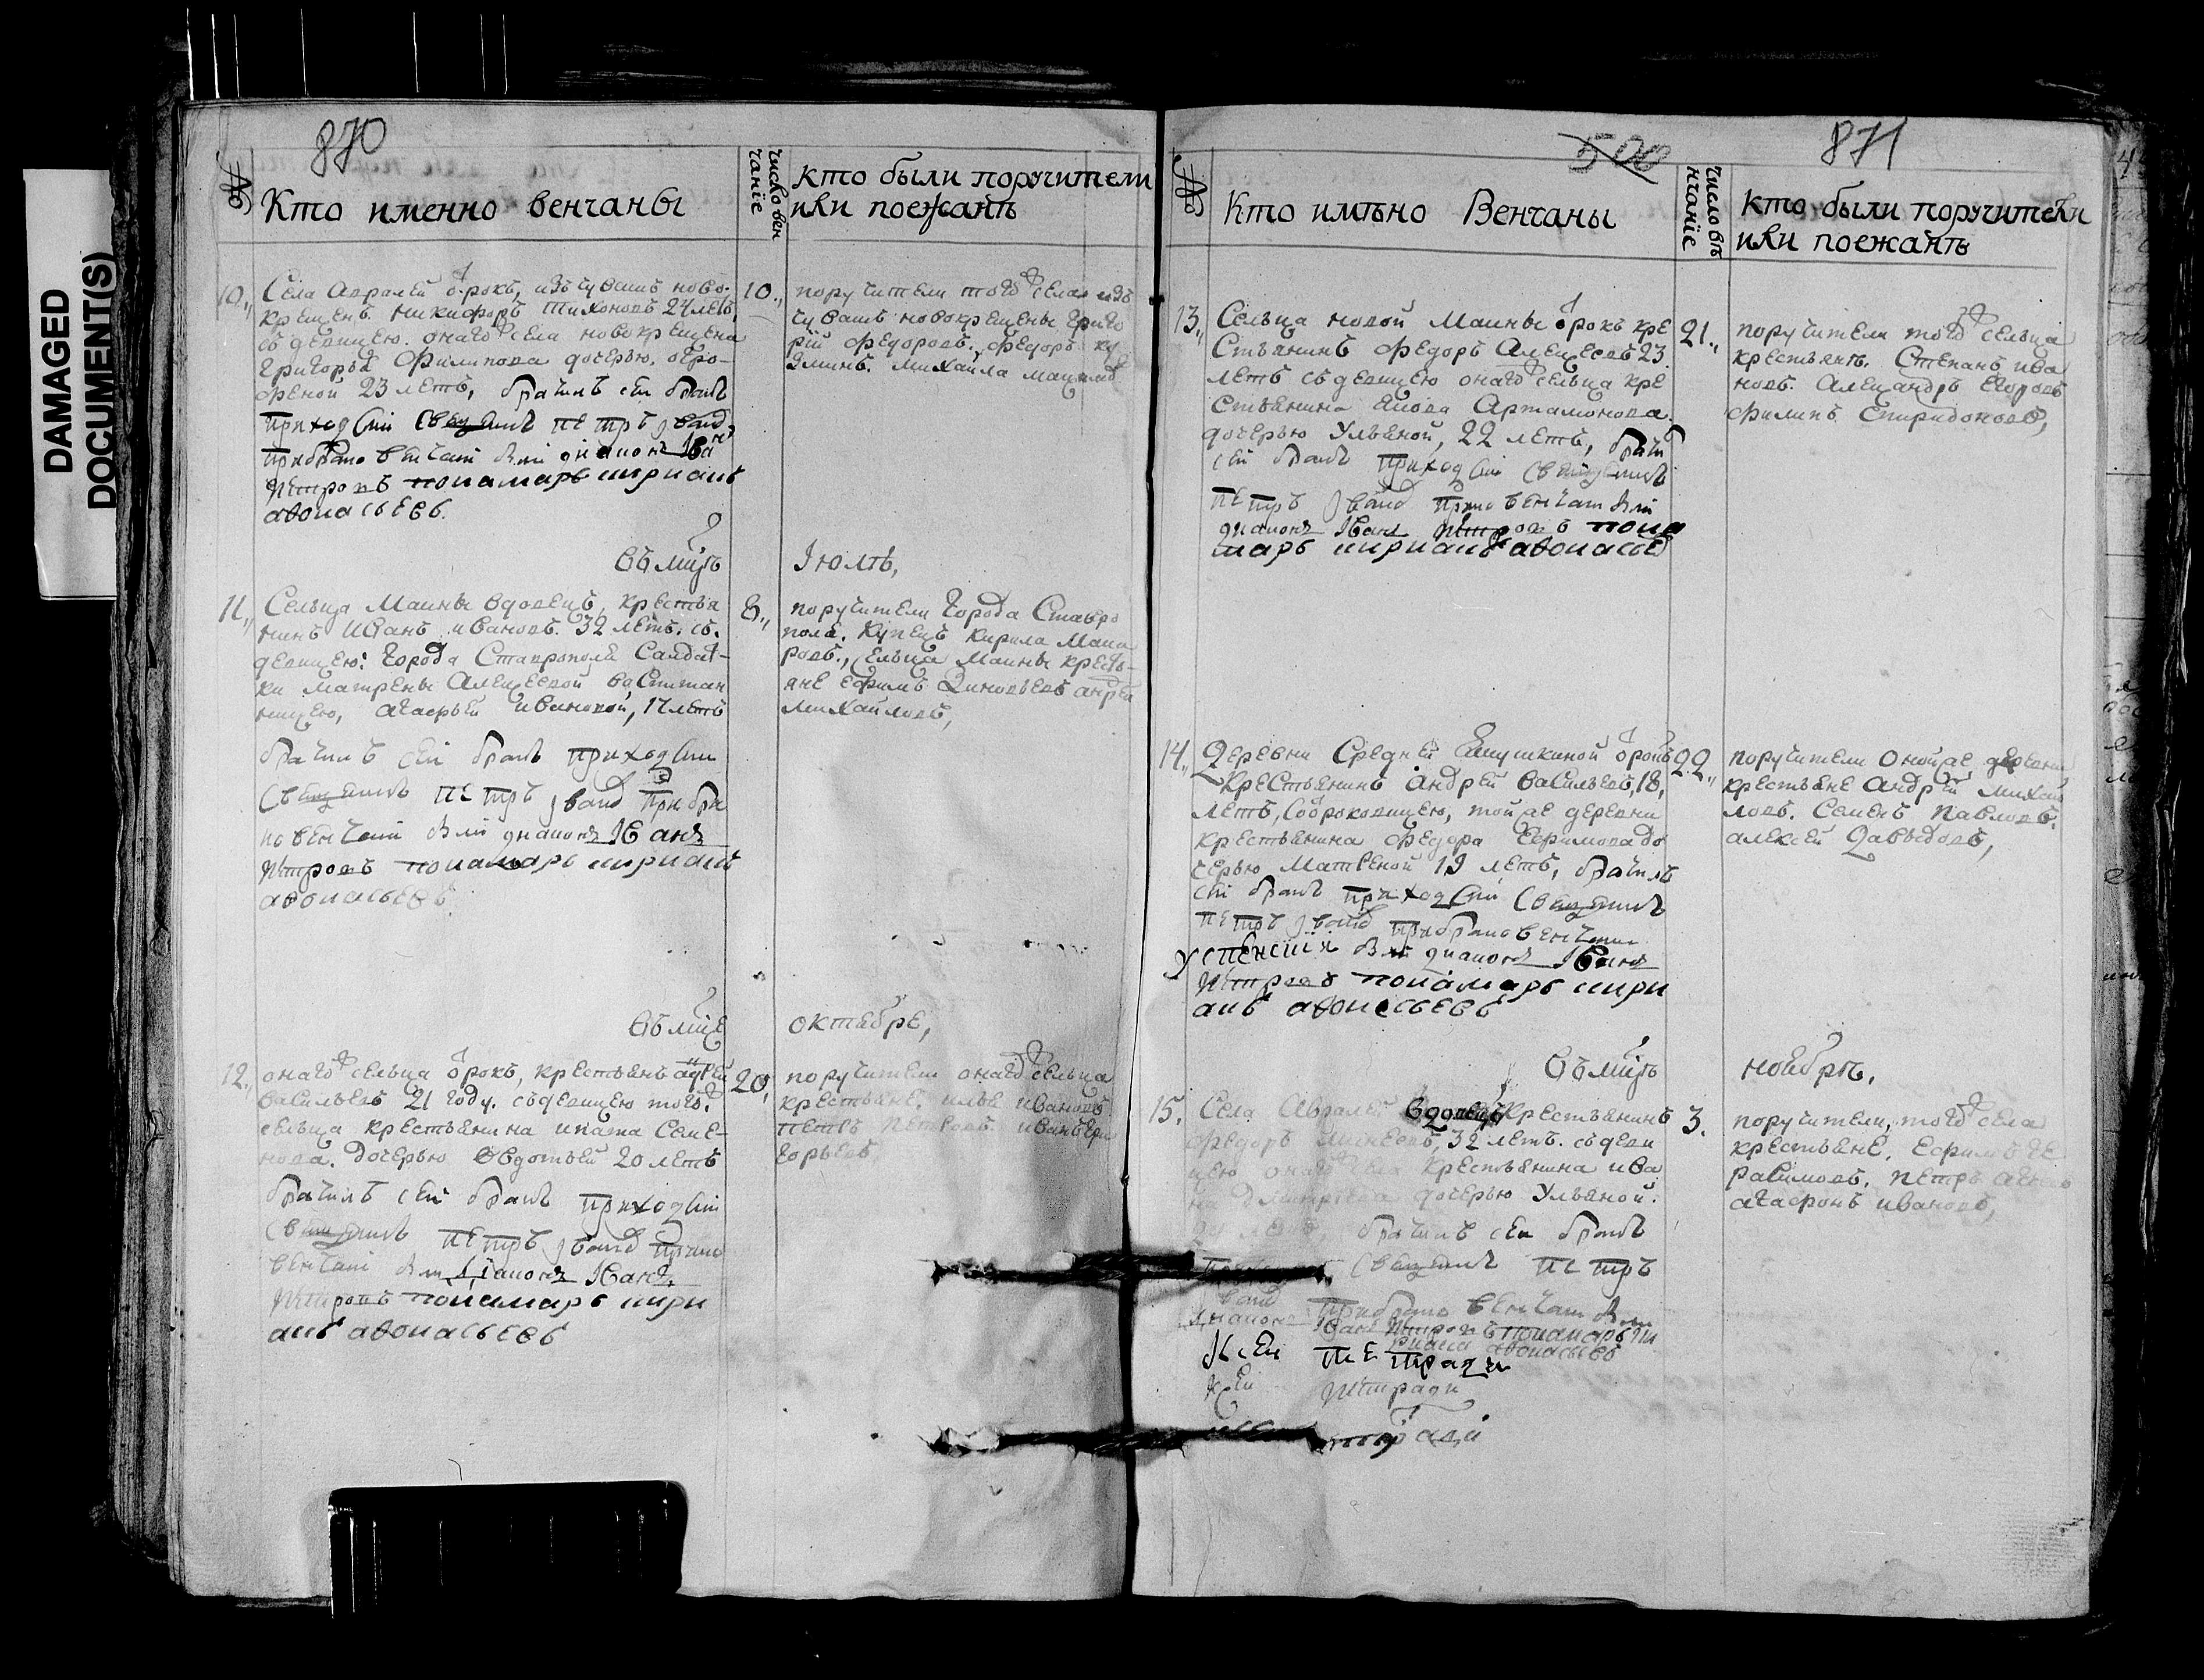 DAMAGED
DOCUMENT(S)
870
№
Кто именно венчаны
число вен
чанїе
кто были поручители
или поежанѣ
10.,
Села Авралей отрокъ, изъ чувашъ ново-
крещенъ. никифоръ тихоновъ 24 летъ,
съ девицею. онагѡ села новокрещена
григорья Филипова дочерью. офро-
феной 23 летъ, брачилъ сей бракъ
приходскїй священникъ петръ
при браковенчанїи были диаконъ Іванъ
петровъ понамарь кириакъ
авонасьевъ.
10.,
поручители тогѡ села изъ
чувашъ новокрещены григо
рїй федоровъ. федоръ ку
зминъ. михайла
въ мцѣ
Іюлѣ,
11.,
Сельца Маины вдовецъ, крестья
нинъ Иванъ ивановъ. 32 летъ. съ.
девицею: города Ставрополя Салдат-
ки матрены Алексеевой васпитан
ницею, агафьей ивановой, 17 летъ
брачилъ сей бракъ приходскїй
священникъ петръ при бра
ковенчанїи были диаконъ Іванъ
петровъ понамарь кириакъ
авонасьевъ
8.,
поручители города Ставро
поля. купецъ кирила
сельца Маины кресть-
яне ефимъ Зиновьевъ андрей
михайловъ,
въ мцѣ
октебре,
12.,
онагѡ сельца отрокъ, крестьянъ андрей
васильевъ 21 году. съ девицею тогѡ.
сельца крестьянина ипата Семе-
нова. дочерью Овдотьей 20 летъ
брачилъ сей бракъ приходскїй
священникъ петръ при брако
венчанїи были дїаконъ Іванъ.
петровъ понамарь кири
акъ авонасьевъ
20,
поручители онагѡ сельца
крестьяне. илья ивановъ
петръ петровъ. иванъ ери
горьевъ,
500
871
№
Кто имѣно Венчаны
число вѣ
нчанїе
кто были поручители
или поежанѣ
13.,
Сельца новой Маины отрокъ кре
стьянинъ федоръ Алексеевъ 23
летъ съ девицею онагѡ сельца кре
стьянина Якова Артамонова.
дочерью Ульяной, 22 летъ, брачи
сей бракъ приходскїй священникъ
петръ при браковенчанїи были
диаконъ Іванъ петровъ пона
марь кириакъ авонасьев
21.,
поручители тогѡ сельца
крестьянъ. Степанъ ива
новъ. Александръ Егоровъ
филипъ Спиридоновъ,
14.,
Деревни Средней отрокъ
крестьянинъ Андрей васильевъ, 18,
летъ, сотроковицею, той же деревни
крестьянина федора Ефимова до
черью Матреной 19 летъ, брачилъ
сей бракъ приходскїй священникъ
петръ при браковенчанїи
Успенскїя были диаконъ Іванъ
петровъ понамарь кири
акъ авонасьевъ
22.,
поручители оной же деревни
крестьяне Андрей михай
ловъ. Семенъ Павловъ.
алексей Давыдовъ,
въ мцѣ
ноебрѣ,
15.
Села Авралей вдовецъ крестьянинъ
федоръ 32 летъ. съ деви
цею онагѡ села крестьянина ива
на дмитриева дочерью Ульяной.
летъ брачилъ сей бракъ
священникъ петръ
при браковенчанїи были
диаконъ Іванъ петровъ понамарь ки
риакъ авонасьевъ
К сей тетради
к сей тетради
3.
поручители, тогѡ села
крестьяне, Ефимъ Ге
расимовъ. петръ
агафонъ ивановъ,